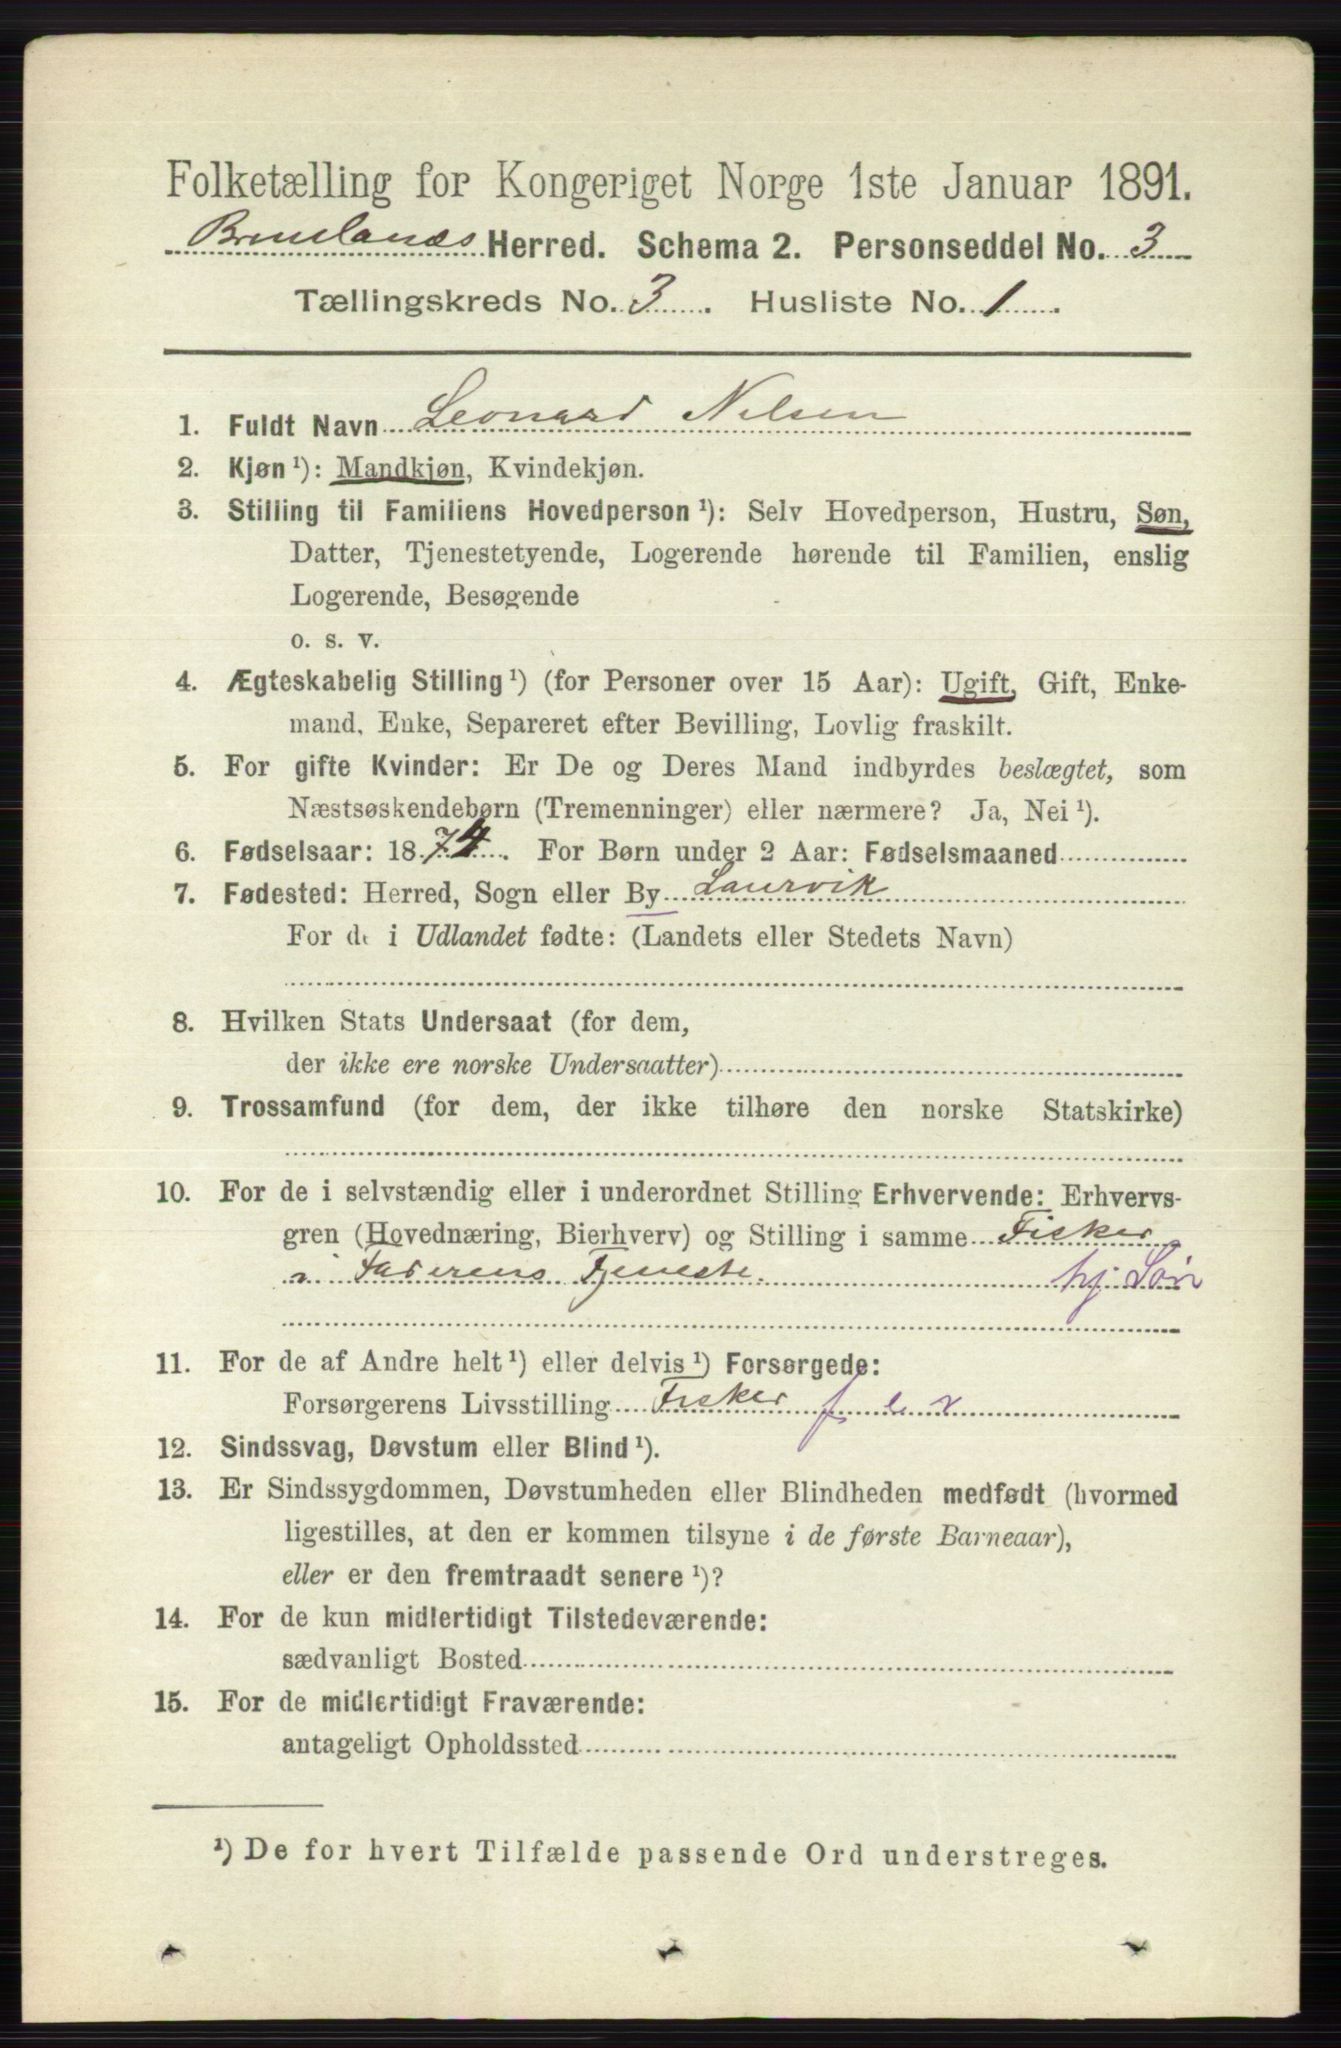 Folketælling for Kongeriget Norge 1ste Januar 1891.
Brunlanæs Herred. Schema 2. Personseddel No. 3
Tællingskreds No. 3. Husliste No. 1.
1. Fuldt Navn Leonard Nilsen
2. Kjøn ¹): Mandkjøn, Kvindekjøn.
3. Stilling til Familiens Hovedperson ¹): Selv Hovedperson, Hustru, Søn,
Datter, Tjenestetyende, Logerende hørende til Familien, enslig
Logerende, Besøgende
o. s. v.
4. Ægteskabelig Stilling ¹) (for Personer over 15 Aar): Ugift, Gift, Enke-
mand, Enke, Separeret efter Bevilling, Lovlig fraskilt.
5. For gifte Kvinder: Er De og Deres Mand indbyrdes beslægtet, som
Næstsøskendebørn (Tremenninger) eller nærmere? Ja, Nei ¹).
6. Fødselsaar: 1874. For Børn under 2 Aar: Fødselsmaaned
7. Fødested: Herred, Sogn eller By Laurvik
For de i Udlandet fødte: (Landets eller Stedets Navn)
8. Hvilken Stats Undersaat (for dem,
der ikke ere norske Undersaatter)
9. Trossamfund (for dem, der ikke tilhøre den norske Statskirke)
10. For de i selvstændig eller i underordnet Stilling Erhvervende: Erhvervs-
gren (Hovednæring, Bierhverv) og Stilling i samme Fisker
i Faderens Tjeneste. hj Søn
11. For de af Andre helt ¹) eller delvis ¹) Forsørgede:
Forsørgerens Livsstilling Fisker f e x
12. Sindssvag, Døvstum eller Blind ¹).
13. Er Sindssygdommen, Døvstumheden eller Blindheden medfødt (hvormed
ligestilles, at den er kommen tilsyne i de første Barneaar),
eller er den fremtraadt senere ¹)?
14. For de kun midlertidigt Tilstedeværende:
sædvanligt Bosted
15. For de midlertidigt Fraværende:
antageligt Opholdssted
¹) De for hvert Tilfælde passende Ord understreges.